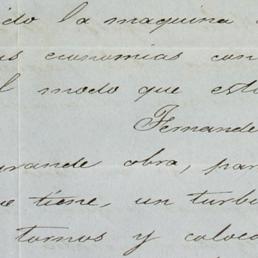 ido la maquina
as economias con
l modo que est
Fernande
grande obra, par
e tiene, un turb
tornos y coloc